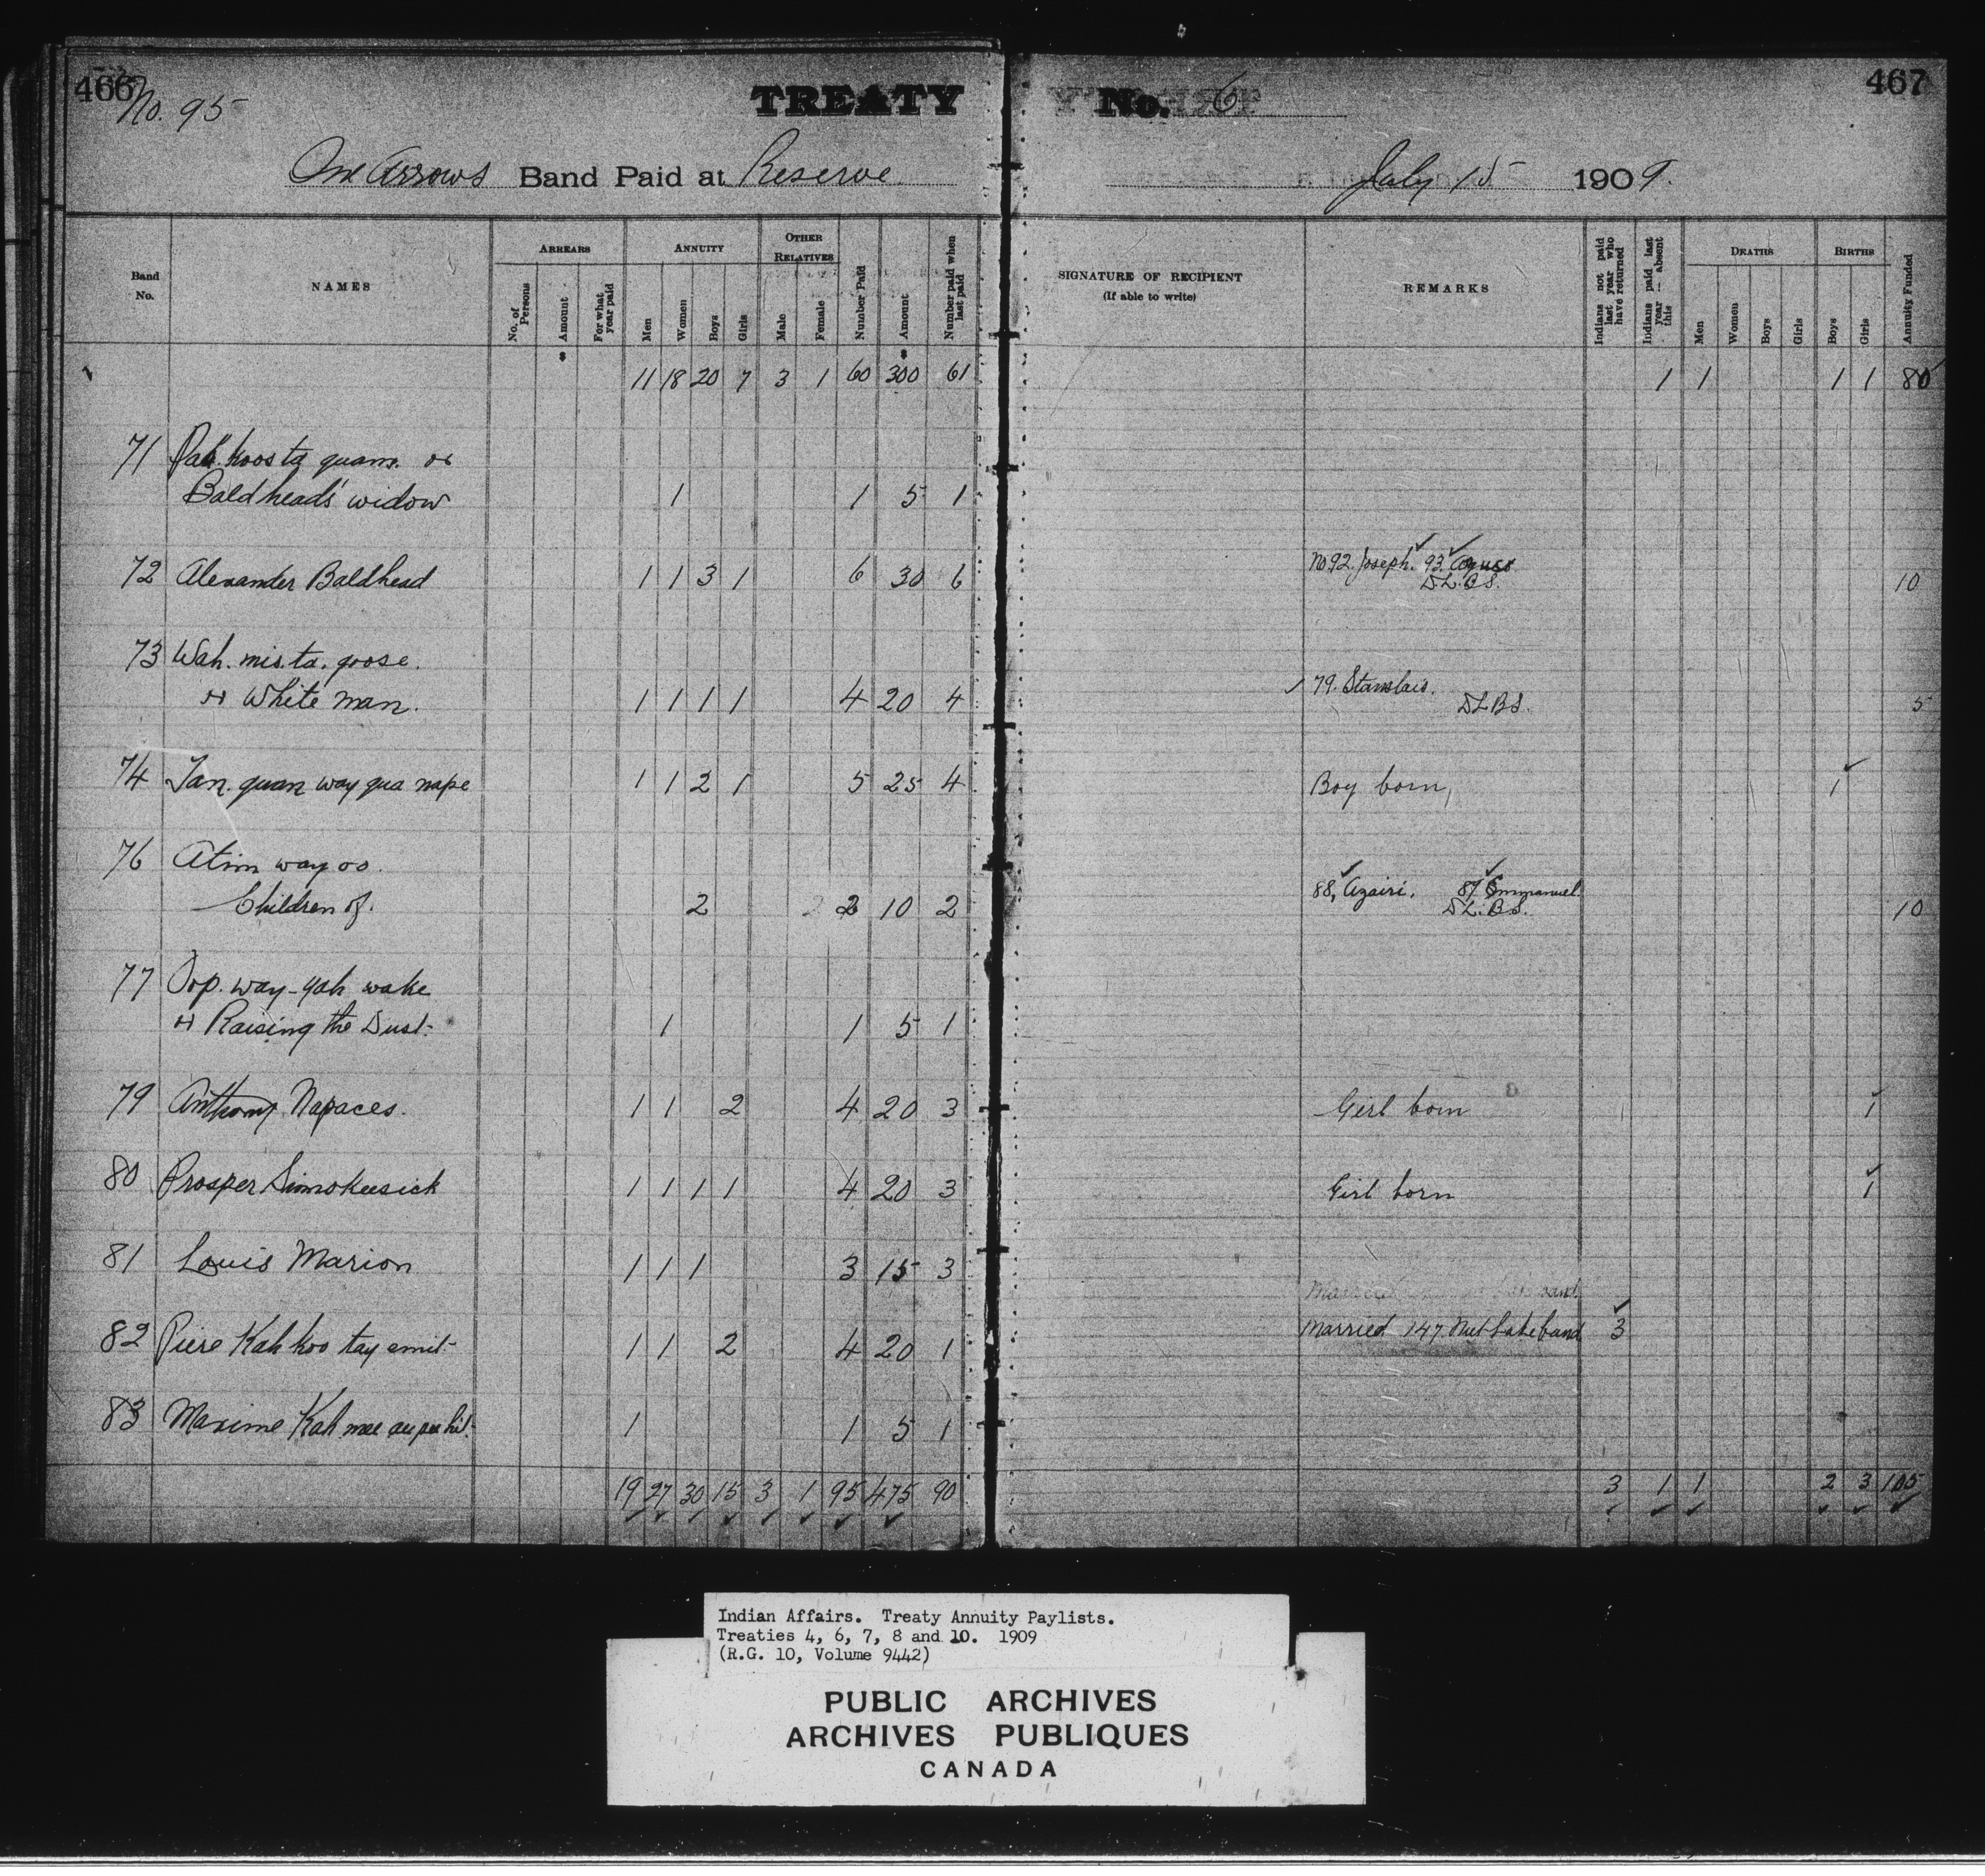 466 No. 95 TREATY No. 6 467
One Arrows Band Paid at Reserve July 15 1909.
Band No. NAMES ARREARS ANNUITY OTHER RELATIVES SIGNATURE OF RECIPIENT (If able to write) REMARKS DEATHS BIRTHS
No. of Persons Amount For what year paid Men Women Boys Girls Male Female Number Paid Amount Number paid when last paid Indians not paid last year who have returned Indians paid last year -- absent this Men Women Boys Girls Boys Girls Annuity Funded
11 18 20 7 3 1 60 300 61 1 1 1 1 80
71 Pah. koos ta quam. or
Baldhead's widow 1 1 5 1
72 Alexander Baldhead 1 1 3 1 6 30 6 No 92. Joseph. 93. D.L.B.S. 10
73 Wah. mis. ta. goose.
or White man. 1 1 1 1 4 20 4 79. Stanslais. DLBS. 5
74 Tan. quan way qua nape 1 1 2 1 5 25 4 Boy born, 1
76 Atim way oo.
Children of. 2 2 2 10 2 88, Azairi. 87 Emmanuel D.L.B.S. 10
77 Oop. way-yah wake
or Raising the Dust. 1 1 5 1
79 Anthony Napaces. 1 1 2 4 20 3 Girl born 1
80 Prosper Simokeesick 1 1 1 1 4 20 3 Girl born 1
81 Louis Marion 1 1 1 3 15 3
Married band.
82 Piere Kah koo tay emit 1 1 2 4 20 1 Married 147. Nut Lake band 3
83 Maxime Kah mee 1 1 5 1
19 27 30 15 3 1 95 475 90 3 1 1 2 3 105
Indian Affairs. Treaty Annuity Paylists.
Treaties 4, 6, 7, 8 and 10. 1909
(R.G. 10, Volume 9442)
PUBLIC ARCHIVES
ARCHIVES PUBLIQUES
CANADA